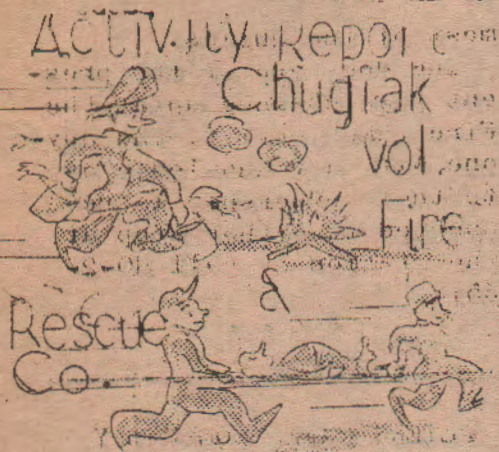 Activity Repor
Chugiak
vol.
Fire
&
Rescue
Co.